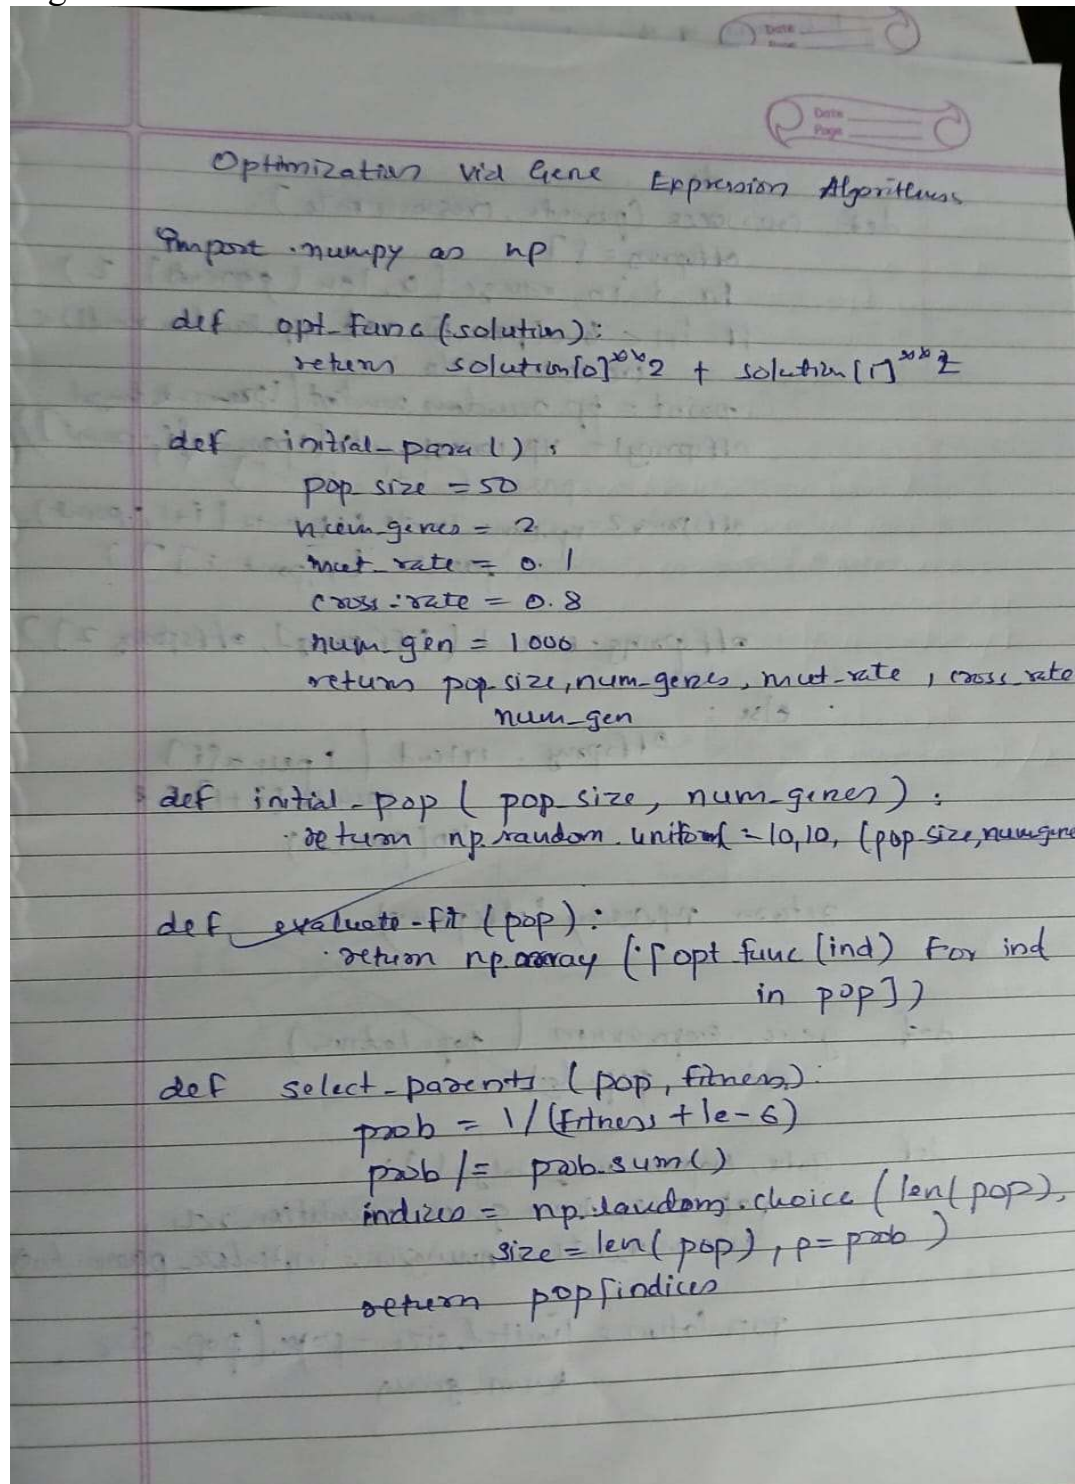 Date
Date
Page
Optimization Via Gene Expression Algorithms
Import numpy as np
def opt_func (solution):
return solution[0]**2 + solution[1]**2
def initial_para():
pop_size = 50
num_genes = 2
mut_rate = 0.1
cross_rate = 0.8
num_gen = 1000
return pop_size, num_genes, mut_rate, cross_rate
num_gen
def initial_pop ( pop_size, num_genes) :
return np.random.uniform(-10,10, (pop_size,numgene
def evaluate_fit (pop):
return np.array ([opt func (ind) For ind
in pop])
def select_parents (pop, fitness):
prob = 1/(fitness + 1e-6)
prob /= prob.sum()
indices = np.random.choice (len(pop),
size = len( pop), p = prob )
return pop[indices